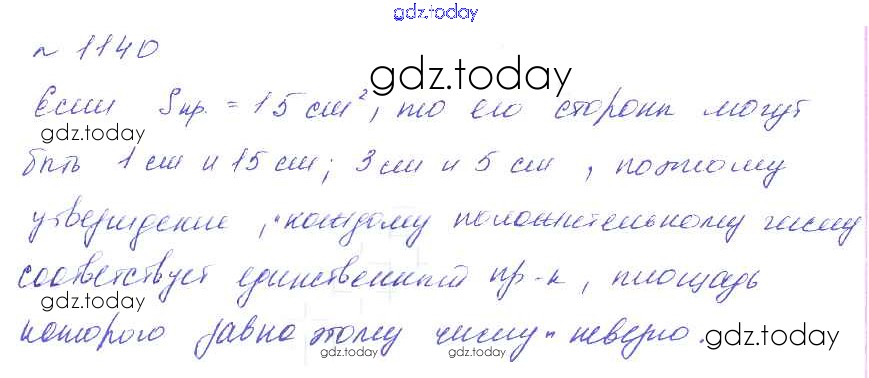 gdz.today
№ 1140
gdz.today
Если Sпр. = 15 см², то его стороны могут
gdz.today
быть 1 см и 15 см; 3 см и 5 см, поэтому
утверждение „каждому положительному числу
соответствует единственный пр-к, площадь
gdz.today
которого равна этому числу" неверно.
gdz.today
gdz.today gdz.today